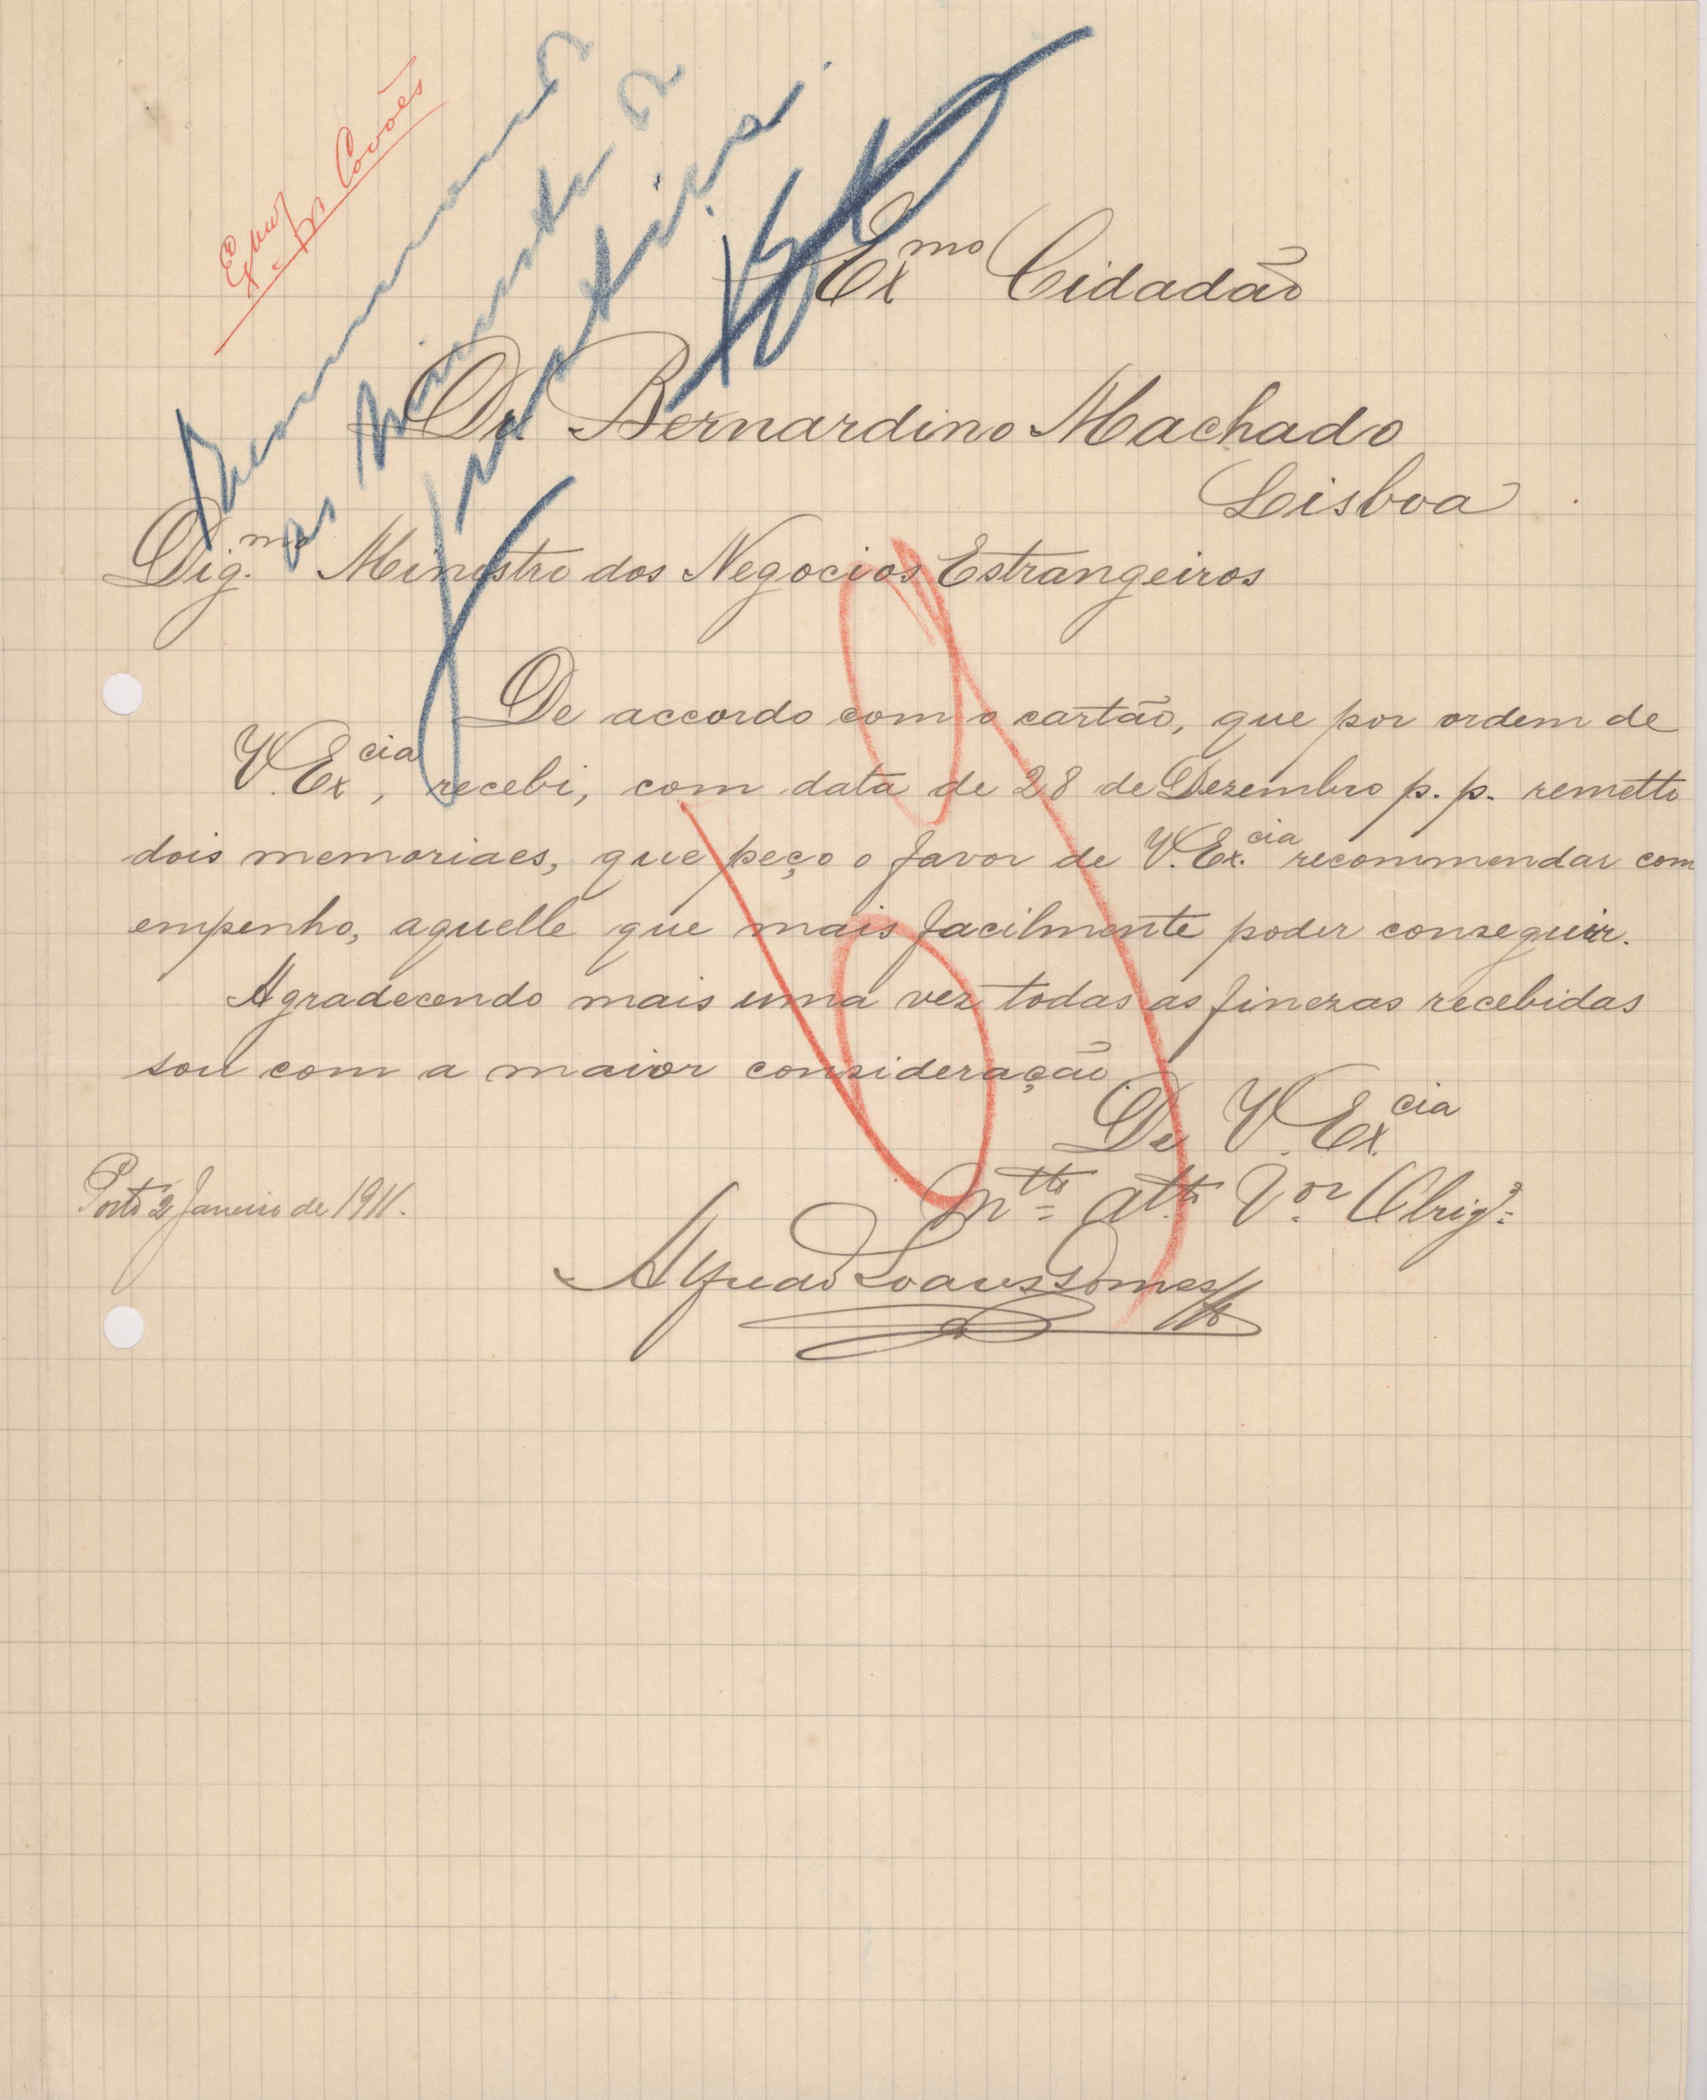 Covões
Recommendar
ao Ministro da
Justiça.
Ex.mo Cidadão
Dr. Bernardino Machado
Lisboa
Dig.mo Ministro dos Negocios Estrangeiros
De accordo com o cartão, que por ordem de
V. Ex.cia, recebi, com data de 28 de Dezembro p. p. remetto
dois memoriaes, que peço o favor de V. Ex.cia recommendar com
empenho, aquelle que mais facilmente poder conseguir.
Agradecendo mais uma vez todas as finezas recebidas
sou com a maior consideração
De V. Ex.cia
M.to At.to V.or Obrig.º
Porto 2 Janeiro de 1911.
Alfredo Soares Gomes